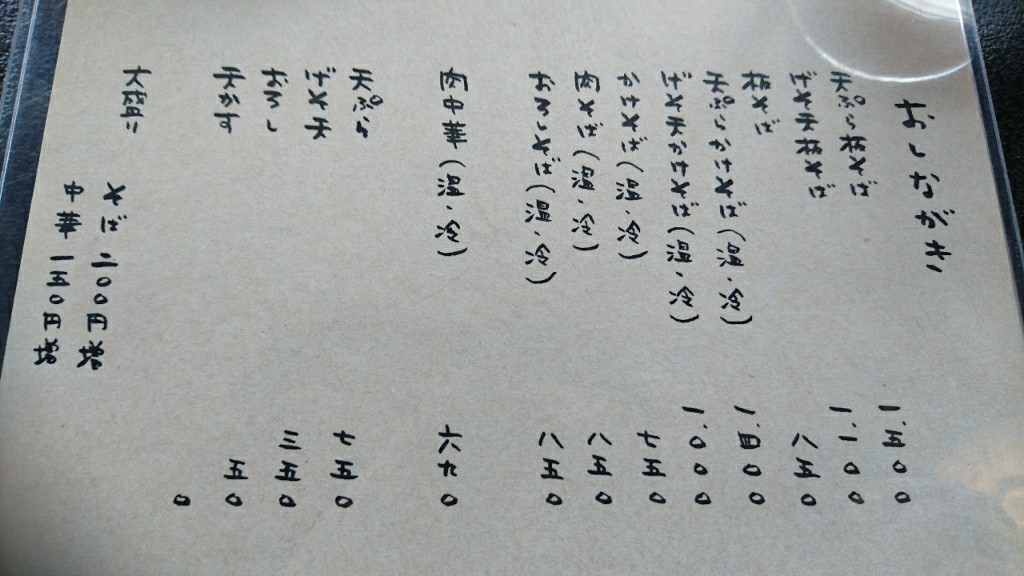 おしながき
天ぷら板そば 一.五〇〇
げそ天板そば 一.一〇〇
板そば 八五〇
天ぷらかけそば(温・冷) 一.四〇〇
げそ天かけそば(温・冷) 一.〇〇〇
かけそば(温・冷) 七五〇
肉そば(温・冷) 八五〇
おろしそば(温・冷) 八五〇
肉中華(温・冷) 六九〇
天ぷら 七五〇
げそ天 三五〇
おろし 五〇
天かす 〇
大盛り
そば 二〇〇円増
中華 一五〇円増